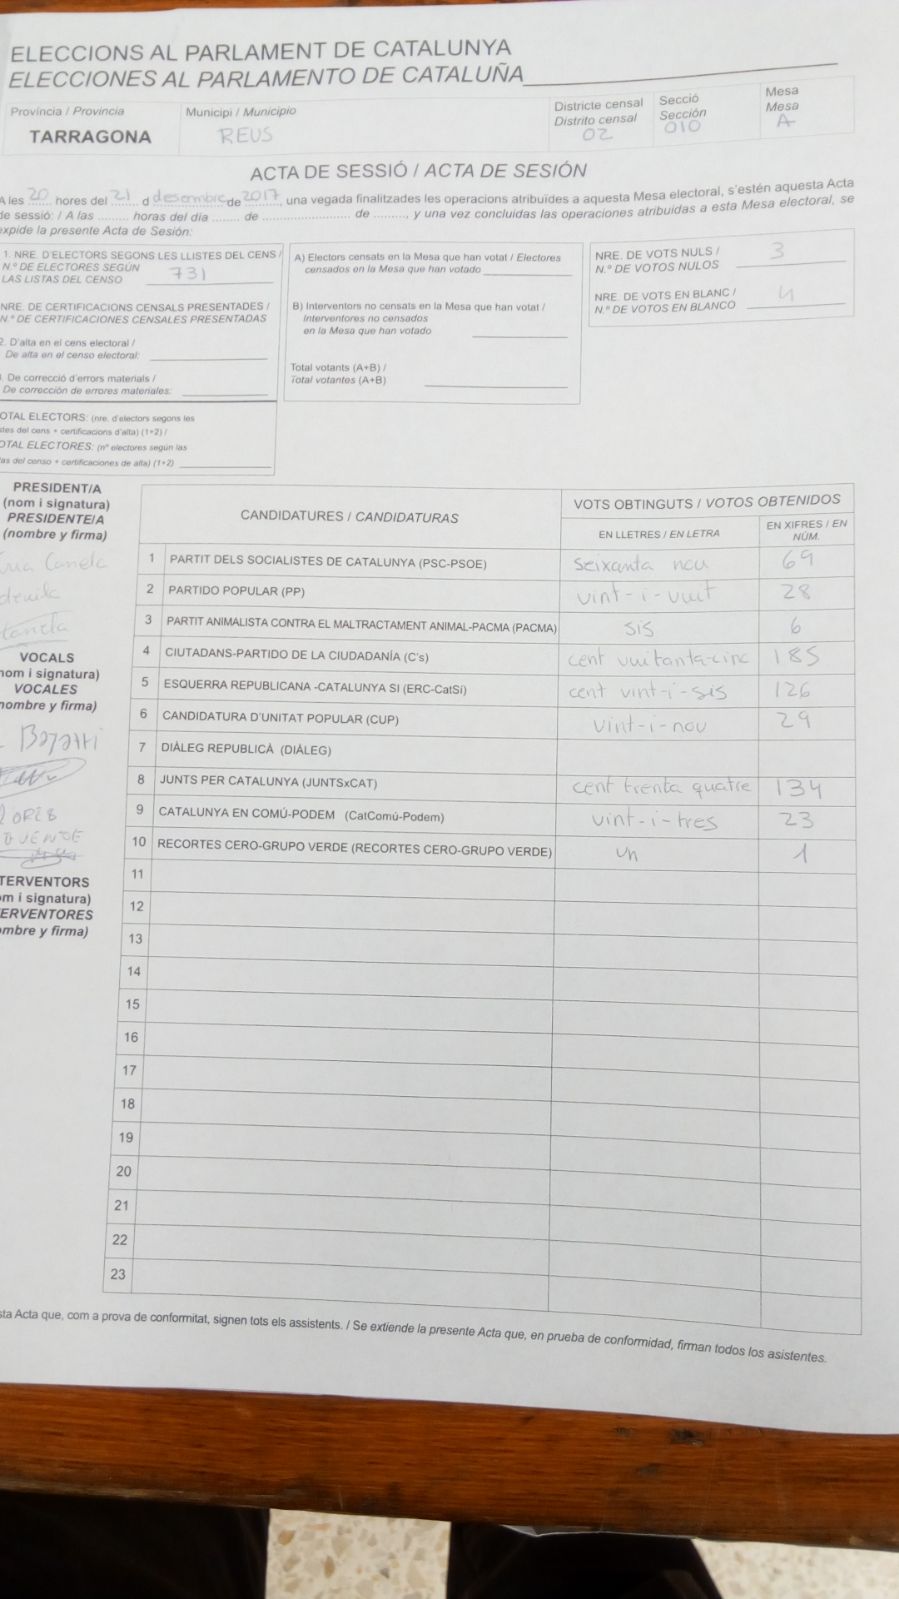 ELECCIONS AL PARLAMENT DE CATALUNYA
ELECCIONES AL PARLAMENTO DE CATALUÑA
Província / Provincia
TARRAGONA
Municipi / Municipio
REUS
Districte censal
Distrito censal
02
Secció
Sección
010
Mesa
Mesa
A
ACTA DE SESSIÓ / ACTA DE SESIÓN
A les 20 hores del 21 d desembre de 2017, una vegada finalitzades les operacions atribuïdes a aquesta Mesa electoral, s'estén aquesta Acta
de sessió: / A las ......... horas del día ....... de ....................... de ........, y una vez concluidas las operaciones atribuidas a esta Mesa electoral, se
expide la presente Acta de Sesión:
1. NRE. D'ELECTORS SEGONS LES LLISTES DEL CENS /
N.º DE ELECTORES SEGÚN
LAS LISTAS DEL CENSO 731
NRE. DE CERTIFICACIONS CENSALS PRESENTADES /
N.º DE CERTIFICACIONES CENSALES PRESENTADAS
2. D'alta en el cens electoral /
De alta en el censo electoral:
. De correcció d'errors materials /
De corrección de errores materiales:
OTAL ELECTORS: (nre. d'electors segons les
stes del cens + certificacions d'alta) (1+2) /
OTAL ELECTORES: (nº electores según las
as del censo + certificaciones de alta) (1+2)
A) Electors censats en la Mesa que han votat / Electores
censados en la Mesa que han votado
B) Interventors no censats en la Mesa que han votat /
Interventores no censados
en la Mesa que han votado
Total votants (A+B) /
Total votantes (A+B)
NRE. DE VOTS NULS /
N.º DE VOTOS NULOS 3
NRE. DE VOTS EN BLANC /
N.º DE VOTOS EN BLANCO 4
PRESIDENT/A
(nom i signatura)
PRESIDENTE/A
(nombre y firma)
Canela
VOCALS
nom i signatura)
VOCALES
nombre y firma)
TERVENTORS
om i signatura)
ERVENTORES
ombre y firma)
CANDIDATURES / CANDIDATURAS
VOTS OBTINGUTS / VOTOS OBTENIDOS
EN LLETRES / EN LETRA
EN XIFRES / EN
NÚM.
1 PARTIT DELS SOCIALISTES DE CATALUNYA (PSC-PSOE) seixanta nou 69
2 PARTIDO POPULAR (PP) vint-i-vuit 28
3 PARTIT ANIMALISTA CONTRA EL MALTRACTAMENT ANIMAL-PACMA (PACMA) sis 6
4 CIUTADANS-PARTIDO DE LA CIUDADANÍA (C's) cent vuitanta-cinc 185
5 ESQUERRA REPUBLICANA -CATALUNYA SI (ERC-CatSí) cent vint-i-sis 126
6 CANDIDATURA D'UNITAT POPULAR (CUP) vint-i-nou 29
7 DIÀLEG REPUBLICÀ (DIÀLEG)
8 JUNTS PER CATALUNYA (JUNTSxCAT) cent trenta quatre 134
9 CATALUNYA EN COMÚ-PODEM (CatComú-Podem) vint-i-tres 23
10 RECORTES CERO-GRUPO VERDE (RECORTES CERO-GRUPO VERDE) un 1
11
12
13
14
15
16
17
18
19
20
21
22
23
sta Acta que, com a prova de conformitat, signen tots els assistents. / Se extiende la presente Acta que, en prueba de conformidad, firman todos los asistentes.